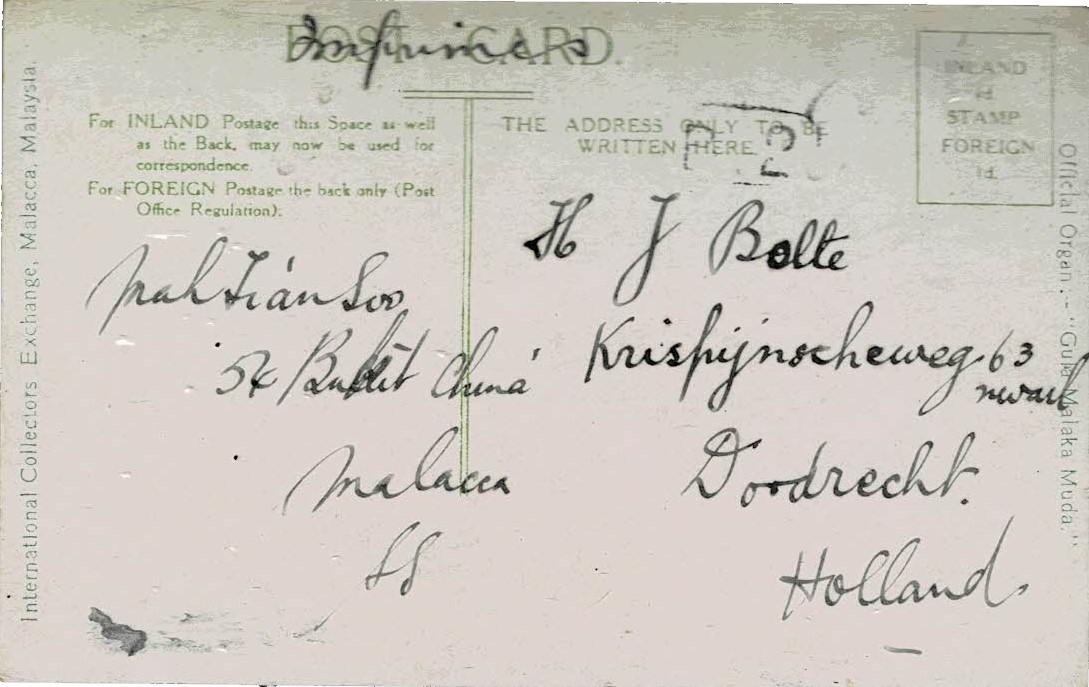 POST CARD.
Imprimés
For INLAND Postage this Space as well
as the Back, may now be used for
correspondence.
For FOREIGN Postage the back only (Post
Office Regulation).
THE ADDRESS ONLY TO BE
WRITTEN HERE
INLAND
½d.
STAMP
FOREIGN
1d.
Mah Tian Soo
54 Bukit China
Malacca
SS
H J Bolte
Krispijnscheweg 63
Doordrecht.
Holland.
International Collectors Exchange, Malacca, Malaysia.
Official Organ :- "Gula Malaka Muda."